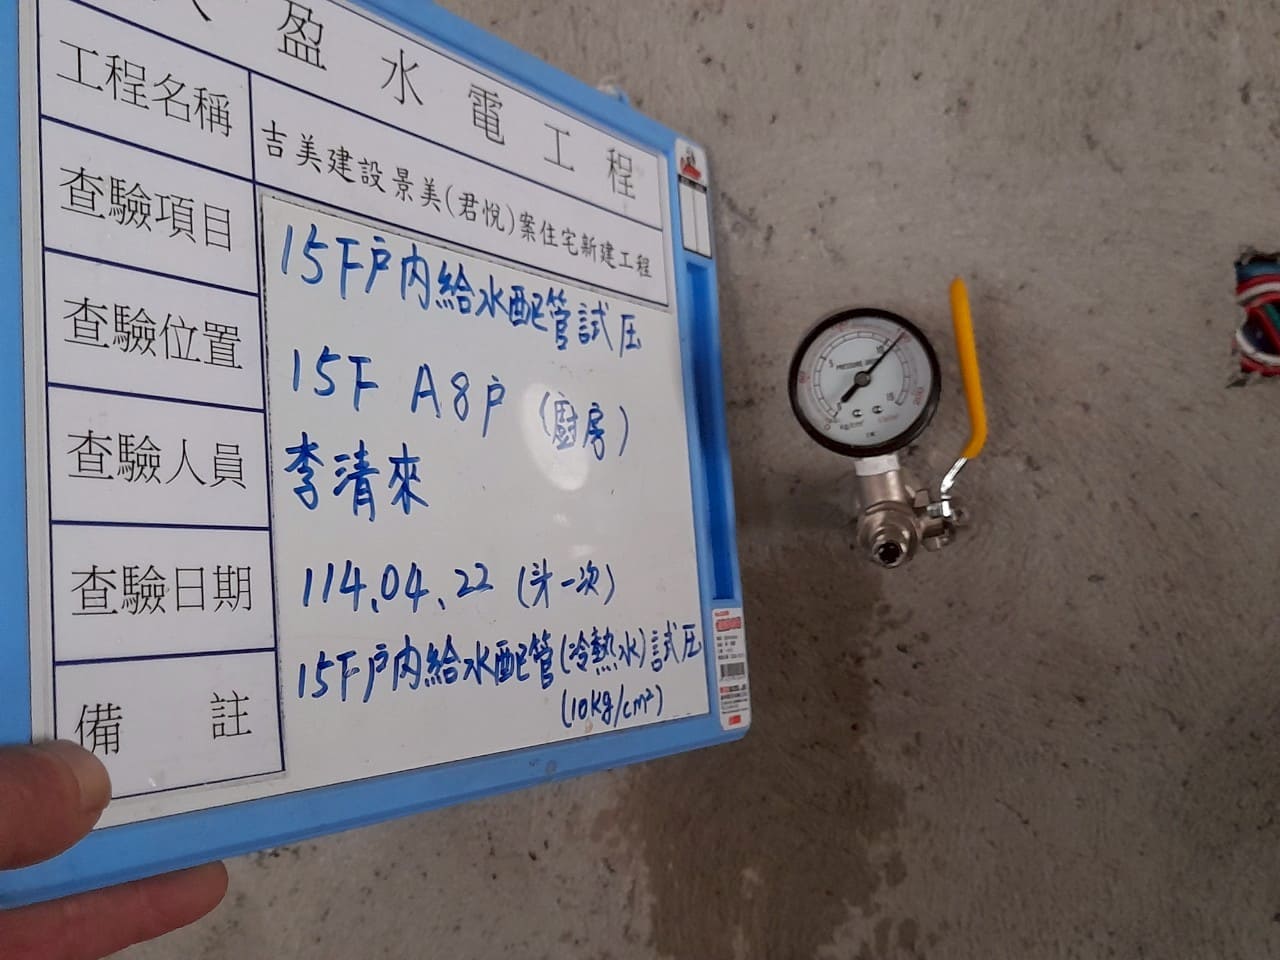 盈水電工程
工程名稱
吉美建設景美(君悅)案住宅新建工程
查驗項目
15F戶內給水配管試压
查驗位置
15F A8戶 (廚房)
查驗人員
李清來
查驗日期
114.04.22 (才一次)
備註
15F戶內給水配管(冷熱水)試压
(10kg/cm²)
5
10
15
0
kg/cm²